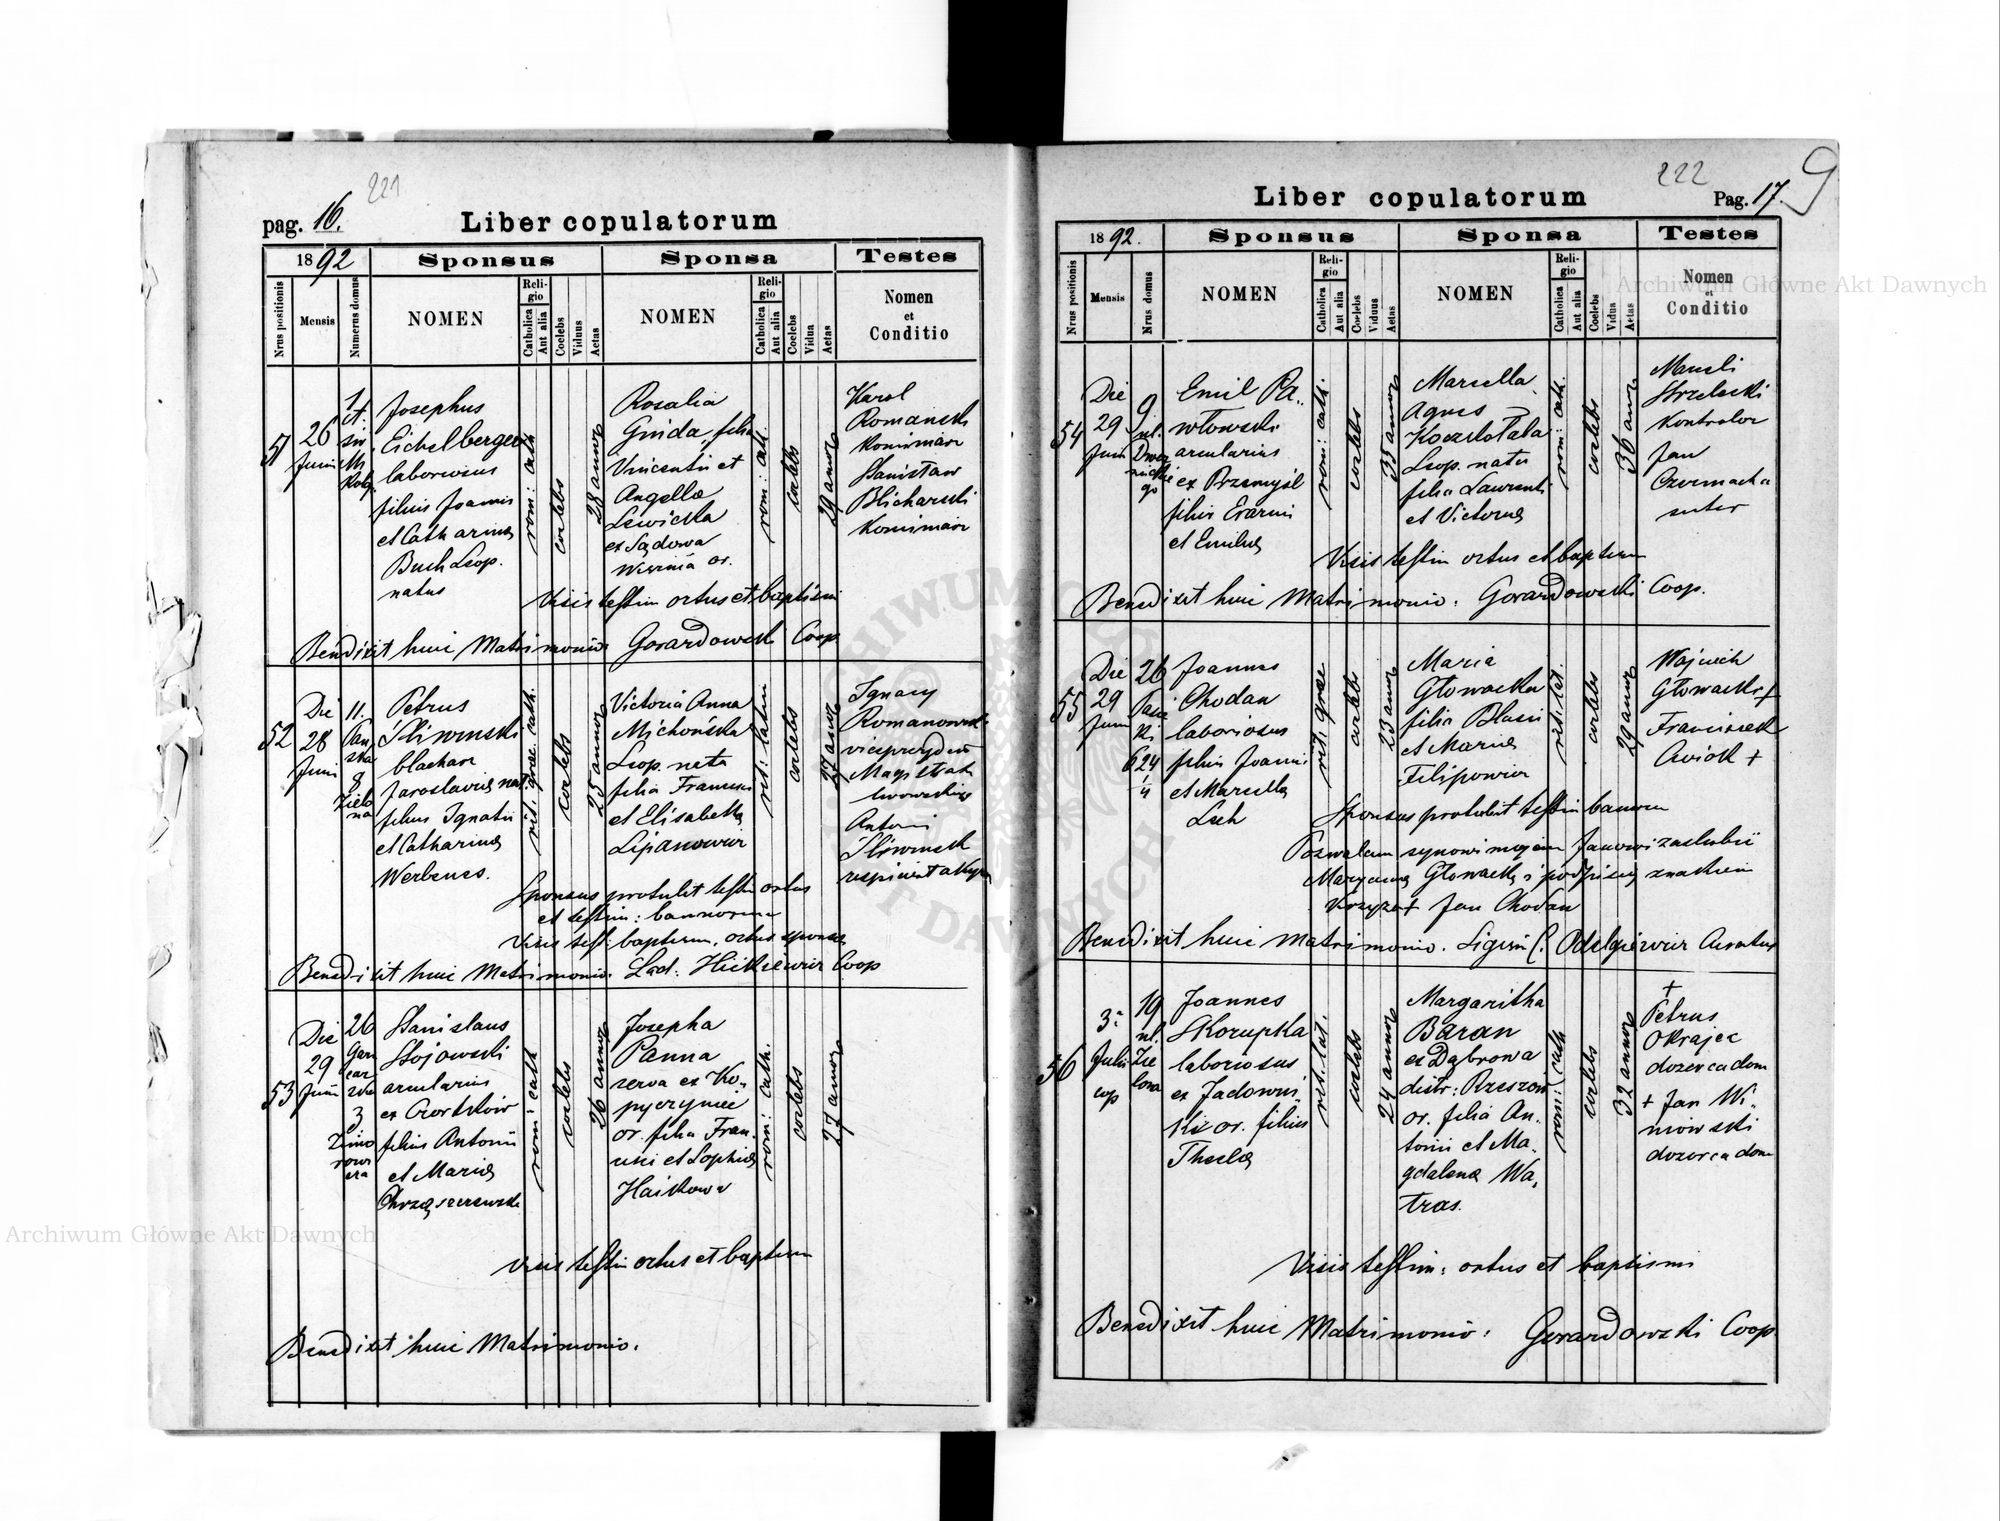 221
pag. 16.
Liber copulatorum
1892
Sponsus
Sponsa
Testes
Nrus positionis
Mensis
Numerus domus
NOMEN
Religio
Catholica
Aut alia
Coelebs
Viduus
Aetas
NOMEN
Religio
Catholica
Aut alia
Coelebs
Vidua
Aetas
Nomen
et
Conditio
51
26
Juni
Josephus
Eichelberger
laboriosus
filius Joannis
et Catharina
Buch Leop.
natus
rom: cath
coelebs
28 annor
Rosalia
Gnida, filia
Vincentii et
Angella
Lewicka
ex Sądowa
Wisznia or.
rom: cath.
coelebs
29 annor
Karol
Romanski
Kominiarz
Stanisław
Blicharski
Kominiarz
Visis testim ortus et baptismi
Benedixit huic Matrimonio: Gorardowski Coop
52
Die
28
Juni
11.
Pan
ska
8
Zielo
na
Petrus
Śliwinski
blacharz
Jaroslavia nat
filius Ignatii
et Catharina
Werbenes.
rit. graec cath.
coelebs
25 annor
Victoria Anna
Michońska
Leop. nata
filia Francisci
et Elisabetha
Lipanowicz
rit: latini
coelebs
27 annor
Ignacy
Romanowski
viceprezydent
Magistratu
lwowskiego
Antoni
Śliwinski
respicient
Sponsus protulit testim ortus
et testim: bannorum
Visis test: baptism. ortus sponsa
Benedixit huic Matrimonio. Lad: Hickiewicz Coop
53
Die
29
Juni
26
Garn
car
ska
3
Zimo
rowi
cza
Stanislaus
Stojowski
arcularius
ex Czortków
filius Antonii
et Maria
Chrząszczewska
rom: cath
coelebs
26 annor
Josepha
Panna
serva ex Ko„
pyczyniec
or. filia Fran„
cisci et Sophia
Haikowa
rom: cath.
coelebs
27 annor
Visis testim ortus et baptism
Benedixit huic Matrimonio.
222
9
Liber copulatorum
Pag. 17.
1892.
Sponsus
Sponsa
Testes
Nrus positionis
Mensis
Nrus domus
NOMEN
Religio
Catholica
Aut alia
Coelebs
Viduus
Aetas
NOMEN
Religio
Catholica
Aut alia
Coelebs
Vidua
Aetas
Nomen
et
Conditio
54
Die
29
Juni
9
ul.
Dwer
nickie
go
Emil Pa„
włowski
arcularius
ex Przemyśl
filius Erazmi
et Emilia
rom: cath.
coelebs
35 annor
Marcella
Agnes
Koczełotała
Leop. nata
filia Laurenti
et Victoria
rom: cath.
coelebs
36 annor
Strzelecki
Kontrolor
Jan
Czermacha
sutor
Visis testim ortus et baptism
Benedixit huic Matrimonio. Gorardowski Coop.
55
Die
29
Juni
26
624
Joannes
Chodan
laboriosus
filius Joannis
et Marcella
Lech
rit: graec
coelebs
23 annor
Maria
Głowacka
filia Blasii
et Maria
Filipowicz
rit: lat.
coelebs
29 annor
Wojciech
Głowacki +
Franciszek
Cwiok +
Sponsus protulit testim bannorum
Pozwalam synowi mojem Janowi zaslubić
Maryannę Głowacką i podpisuję znakiem
Krzyża + Jan Chodan
Benedixit huic Matrimonio. Ligerin C. Odelgiewicz Curatus
56
3.
Julii
cop
19
ul.
Zie
lona
Joannes
Skorupka
laboriosus
ex Jadowni„
ki or. filius
Thecla
rit. lat.
coelebs
24 annor
Margaritha
Baran
ex Dąbrowa
distr: Rzeszów
or. filia An„
tonii et Ma„
gdalena Wa„
tras.
rom: cath
coelebs
32 annor
+
Petrus
Okrajec
dozorca dom
+ Jan Wi„
niowski
dozorca dom
Visis testim: ortus et baptismi
Benedixit huic Matrimonio: Gorardowski Coop.
Archiwum Główne Akt Dawnych
Archiwum Główne Akt Dawnych